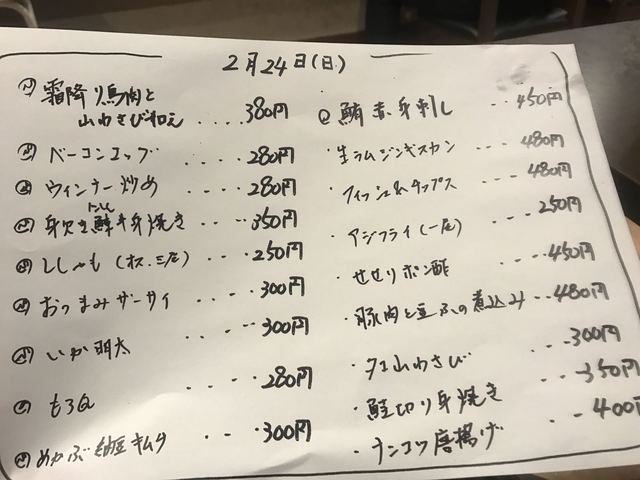 2月24日(日)
霜降り馬肉と
山わさび和え ....380円
ベーコンエッグ .....280円
ウィンナー炒め ....280円
身欠き鰊半身焼き ...350円
ししゃも (オス.三尾) ....250円
おつまみザーサイ ....300円
いか明太 .....300円
もろQ ....280円
めかぶ納豆キムチ ...300円
鮪赤身刺し ..450円
・生ラムジンギスカン ...480円
・フィッシュ&チップス ...480円
・アジフライ(一尾) ...250円
・せせりポン酢 ....450円
・豚肉と豆ふの煮込み ..480円
・タコ山わさび ...300円
・鮭切り身焼き ...350円
・ナンコツ唐揚げ ..400円